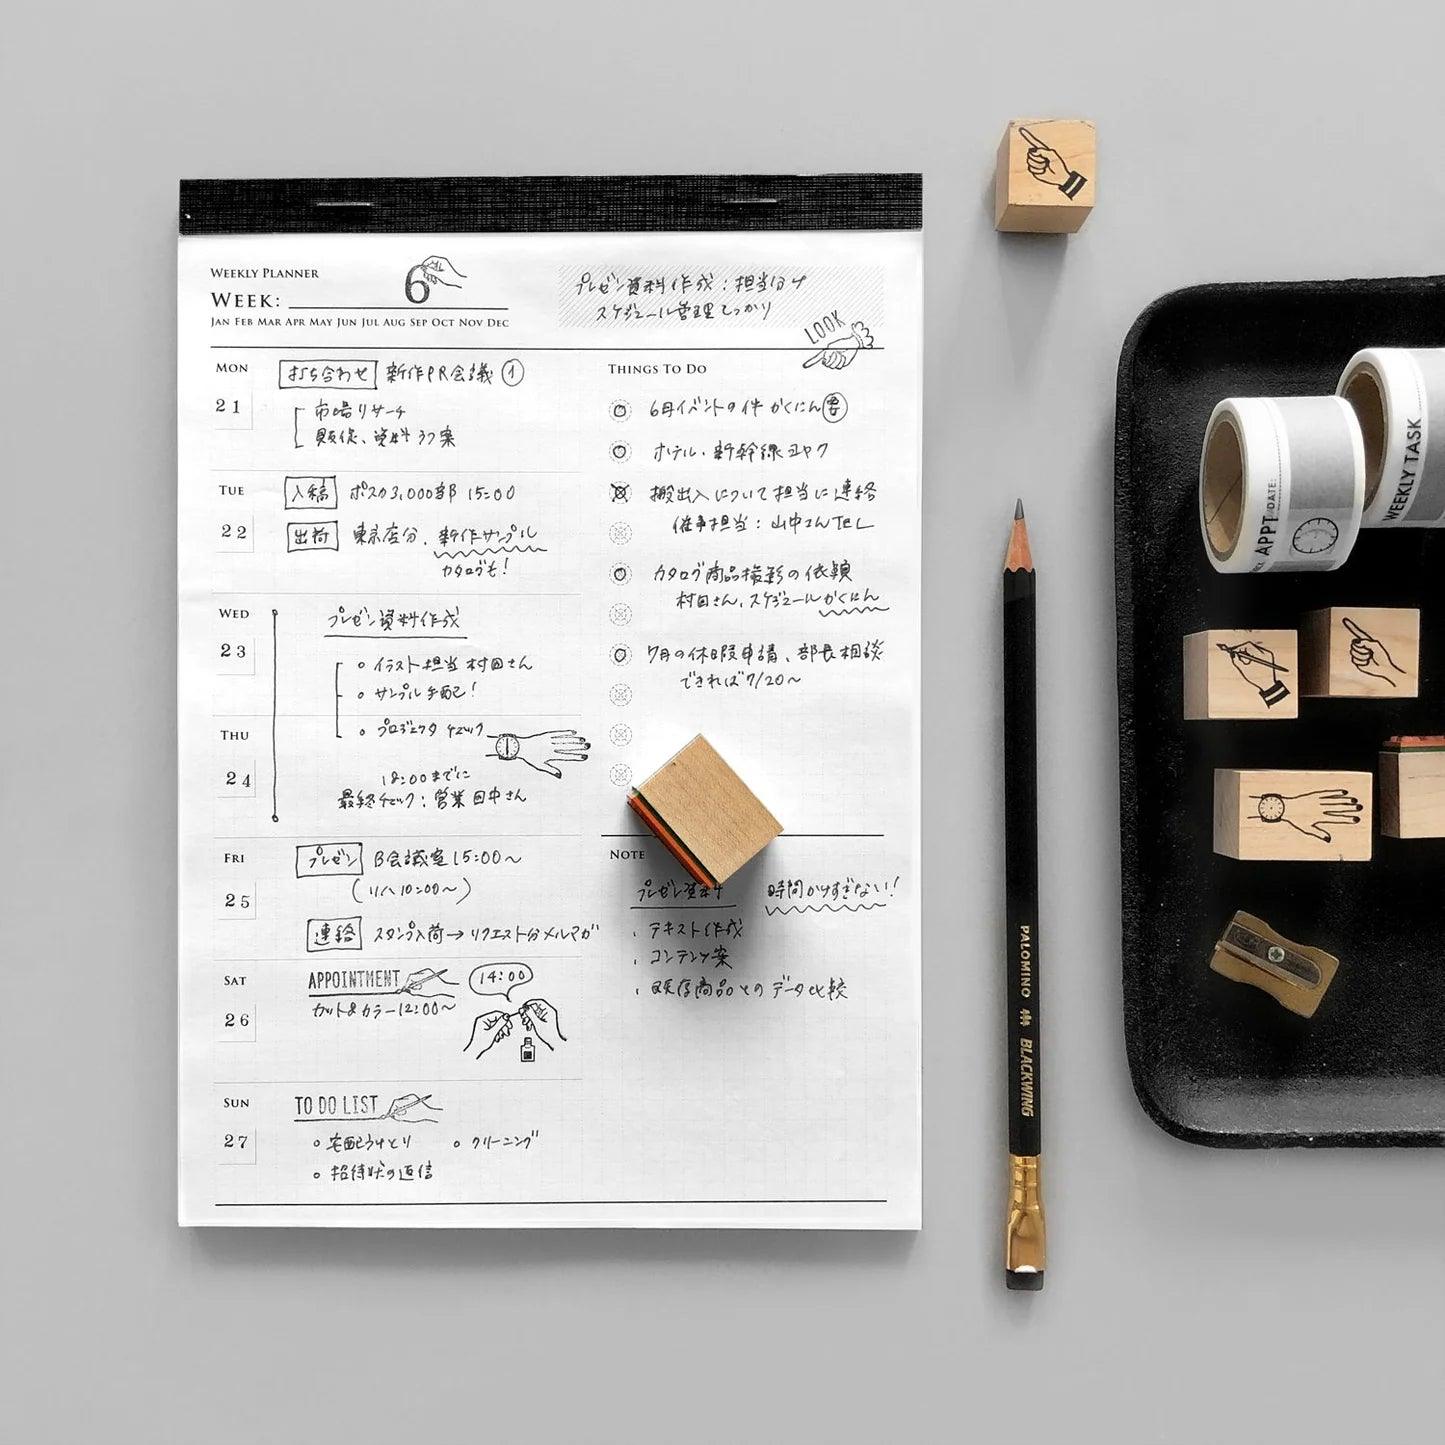 WEEKLY PLANNER
WEEK:
6
JAN FEB MAR APR MAY JUN JUL AUG SEP OCT NOV DEC
プレゼン資料作成:担当分け
スケジュール管理しっかり
LOOK
MON
21
打ち合わせ 新作PR会議 ①
市場リサーチ
販促、資料 3つ案
TUE
22
入稿 ポスカ3,000部 15:00
出荷 東京店分、新作サンプル
カタログも!
WED
23
プレゼン資料作成
イラスト担当 村田さん
サンプル手配!
THU
24
プロジェクタ チェック
18:00までに
最終チェック:営業 田中さん
FRI
25
プレゼン B会議室 15:00〜
(リハ10:00〜)
連絡 スタンプ入荷→リクエスト分メルマガ
SAT
26
APPOINTMENT
14:00
カット&カラー12:00〜
SUN
27
TO DO LIST
宅配うけとり
クリーニング
招待状の返信
THINGS TO DO
6月イベントの件 かくにん
ホテル・新幹線ヨヤク
搬出入について担当に連絡
催事担当:山中さんTEL
カタログ商品撮影の依頼
村田さん、スケジュールかくにん
7月の休暇申請、部長相談
できれば7/20〜
NOTE
プレゼン資料 時間かけすぎない!
テキスト作成
コンテンツ案
既存商品とのデータ比較
PALOMINO BLACKWING
APPT
DATE:
WEEKLY TASK